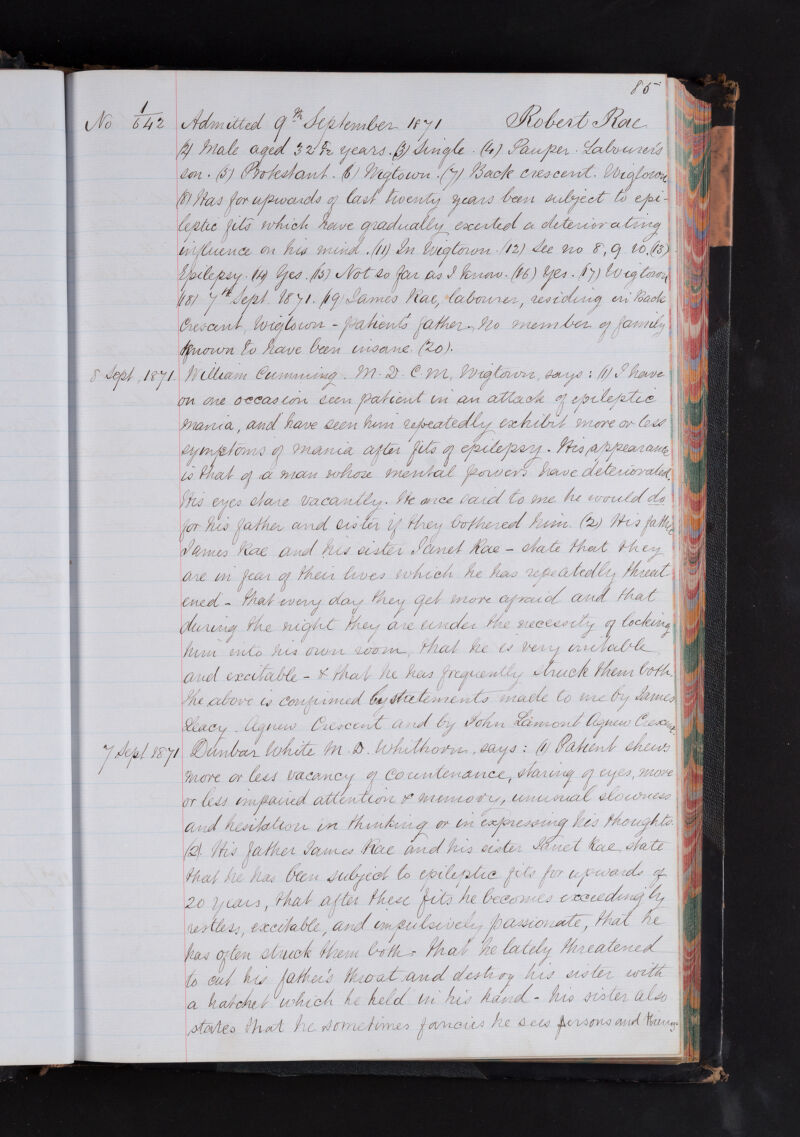 85
No 1/642 Admitted 9th September 1871 Robert Rae
(2) Male aged 32 8/12 years. (3) Single. (4) Pauper. Labourer's
son. (5) Protestant. (6) Wigtown. (7) Back crescent. Wigtown
(8) Has for upwards of last twenty years been subject to epi-
leptic fits which have gradually exerted a deteriorating
influence on his mind. (11) In Wigtown. (12) See no 8, 9. 10. (13)
Epilepsy. (14) Yes. (15) Not so far as I know. (16) Yes. (17) Wigtown
(18) 7th Sept. 1871. (19) James Rae, labourer, residing in Back
Crescent, Wigtown - patient's father. No member of family
known to have been insane. (20).
8 Sept. 1871 William Cumming. M.D. C.M. Wigtown, says: (1) I have
on one occasion seen patient in an attack of epileptic
mania, and have seen him repeatedly exhibit more or less
symptoms of mania after fits of epilepsy. His appearance
is that of a man whose mental powers have deteriorated.
His eyes stare vacantly. He once said to me he would do
for his father and sister if they bothered him. (2) His father
James Rae and his sister Janet Rae - state that they
are in fear of their lives which he has repeatedly threat
ened - that every day they get more afraid and that
during the night they are under the necessity of locking
him into his own room, that he is very irritable
and excitable - & that he has frequently struck them both.
The above is confirmed by statements made to me by James
Leacy. Agnew Crescent and by John Lamont Agnew Crescent.
7 Sept 1871 Dunbar White M.D. Whithorn, says: (1) Patient shews
more or less vacancy of countenance, staring of eyes, more
or less impaired attention & memory, unusual slowness
and hesitation in thinking or in expressing his thoughts.
(2) His father James Rae and his sister Janet Rae, state
that he has been subject to epileptic fits for upwards of
20 years, that after these fits he becomes exceedingly
restless, excitable, and impulsively passionate, that he
has often struck them both - that he lately threatened
to cut his father's throat and destroy his sister with
a hatchet which he held in his hand - his sister also
states that he sometimes fancies he sees persons and things